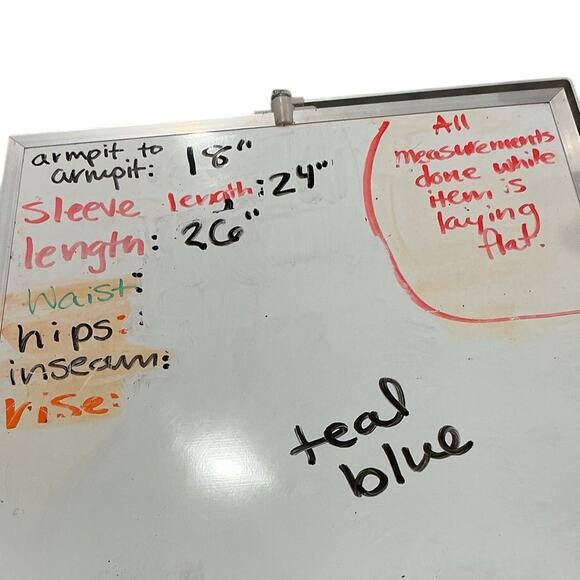 armpit to
armpit: 18"
sleeve length: 24"
length: 26"
Waist:
hips:
inseam:
rise:
All
measurements
done while
item is
laying
flat.
teal
blue